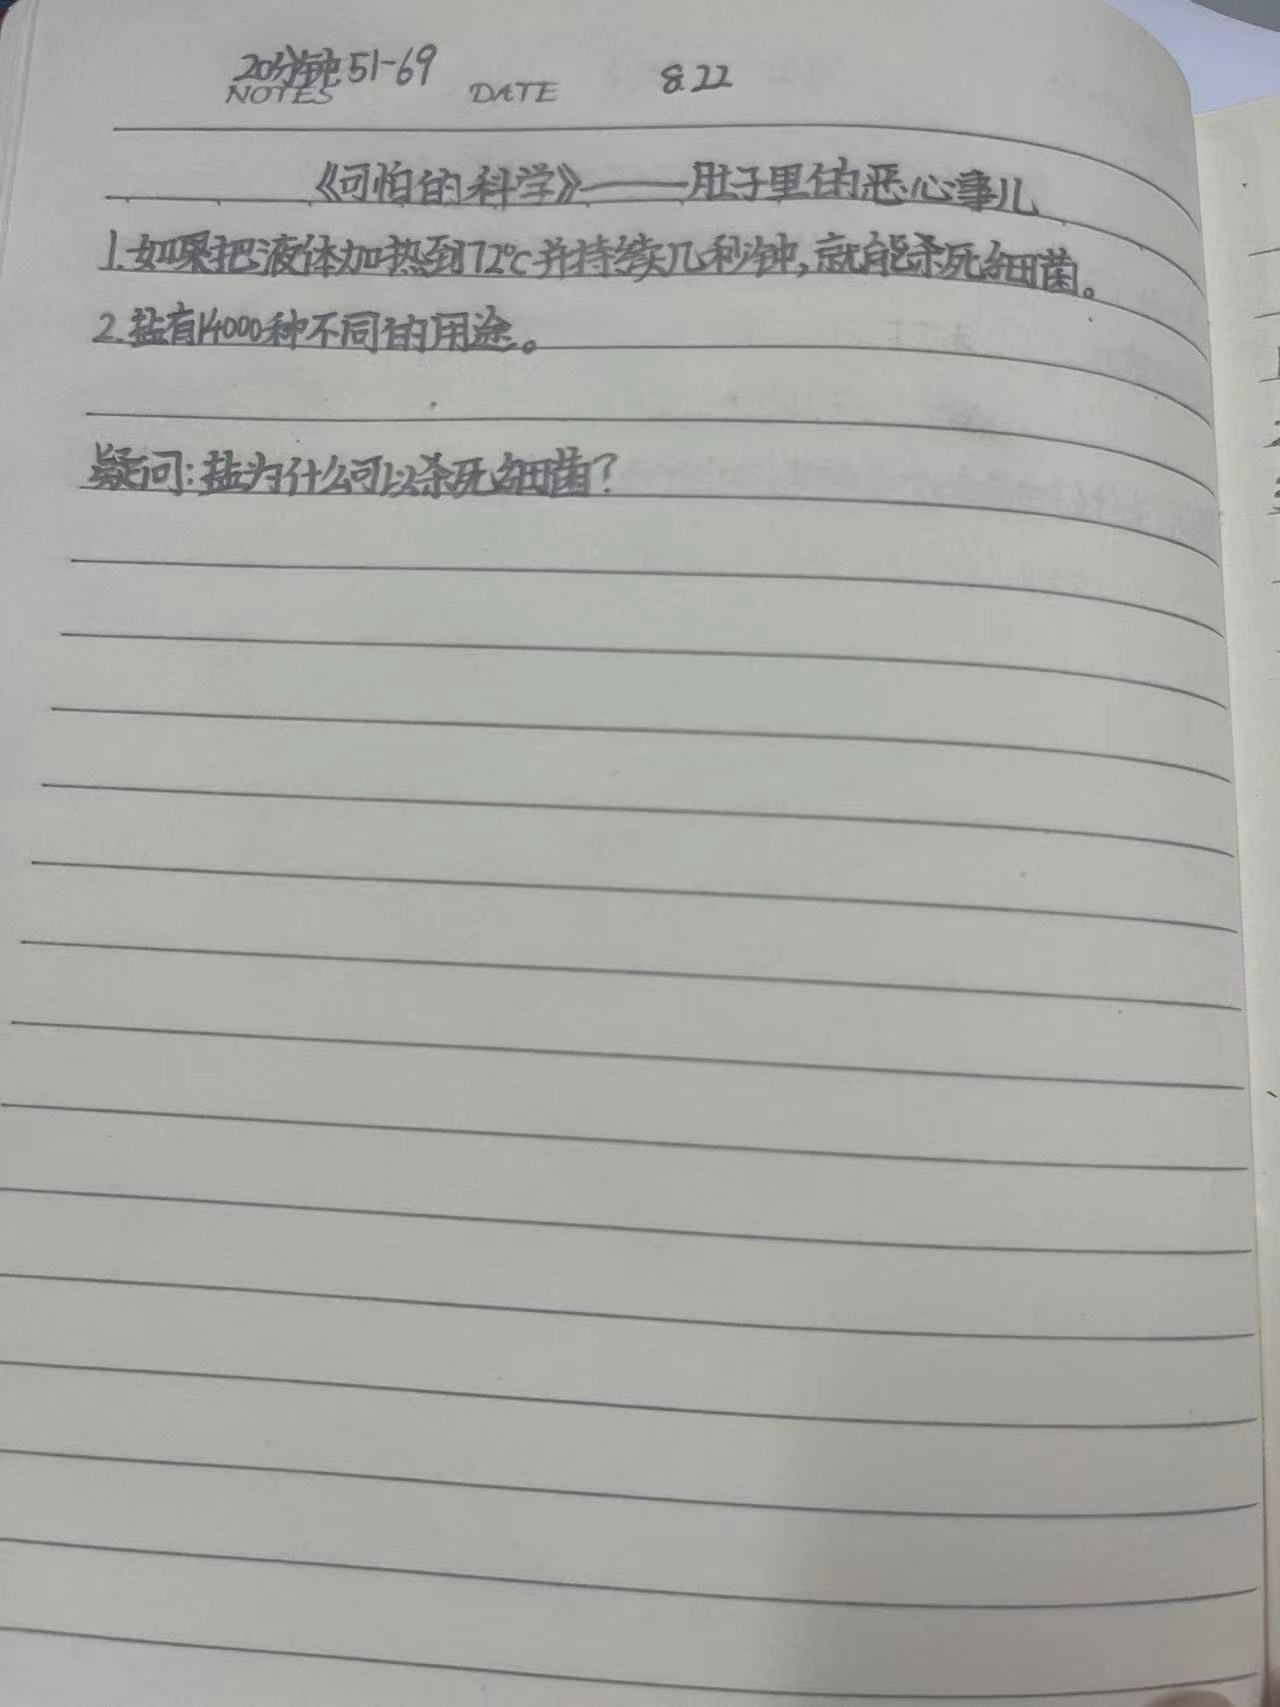 20分钟 51-69 8.22
NOTES DATE
《可怕的科学》——肚子里的恶心事儿
1.如果把液体加热到72℃并持续几秒钟,就能杀死细菌。
2.盐有14000种不同的用途。
疑问:盐为什么可以杀死细菌?